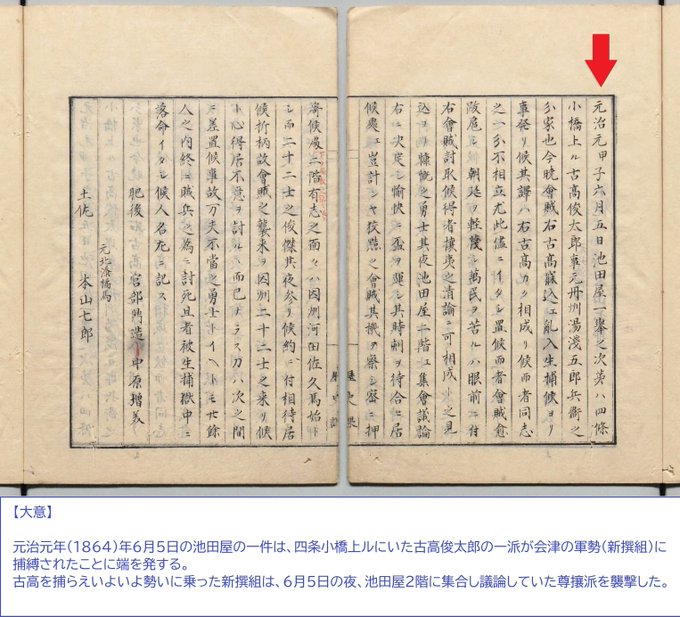 元治元甲子六月五日池田屋一擧之次第ハ四條
小橋上ル古高俊太郎事元丹州湯淺五郎兵衛之
分家也今晩會賊右古高寐込ニ亂入生捕候ヨリ
事発リ候其譯ハ右古高カク相成リ候而者同志
之一分不相立尤此儘ニイタシ置候而者會賊愈
跋扈シ朝廷ヲ軽蔑シ萬民ヲ苦ルハ眼前ニ付
右會賊討取候得者攘夷之清論ニ可相成ト之見
込ヨリ慷慨之勇士其夜池田屋二階ニ集會議論
右ニ決定シ愉快ニ盃ヲ運シ其時刻ヲ待合ニ居
候處ニ豈計ンヤ狡黠之會賊其機ヲ察シ密ニ押
寄候處二階有志之面々ハ因州河田佐久馬始ト
シ而二十二士之俊傑其夜参リ候約ニ付相待居
候折柄故會賊之襲来ヲ因州二十二士之来リ候
ト心得居不意ヲ討ルヽ而已ナラス刀ハ次之間
ニ差置候事故万夫不當之勇士トイヘトモ廿餘
人之内終ニ賊兵之為ニ討死且者被生捕獄中ニ
落命イタシ候人名左ニ記ス
肥後 宮部鼎造 中原増美
元北添佶馬
土佐 本山七郎
歴史課
【大意】
元治元年(1864)年6月5日の池田屋の一件は、四条小橋上ルにいた古高俊太郎の一派が会津の軍勢(新撰組)に
捕縛されたことに端を発する。
古高を捕らえいよいよ勢いに乗った新撰組は、6月5日の夜、池田屋2階に集合し議論していた尊攘派を襲撃した。